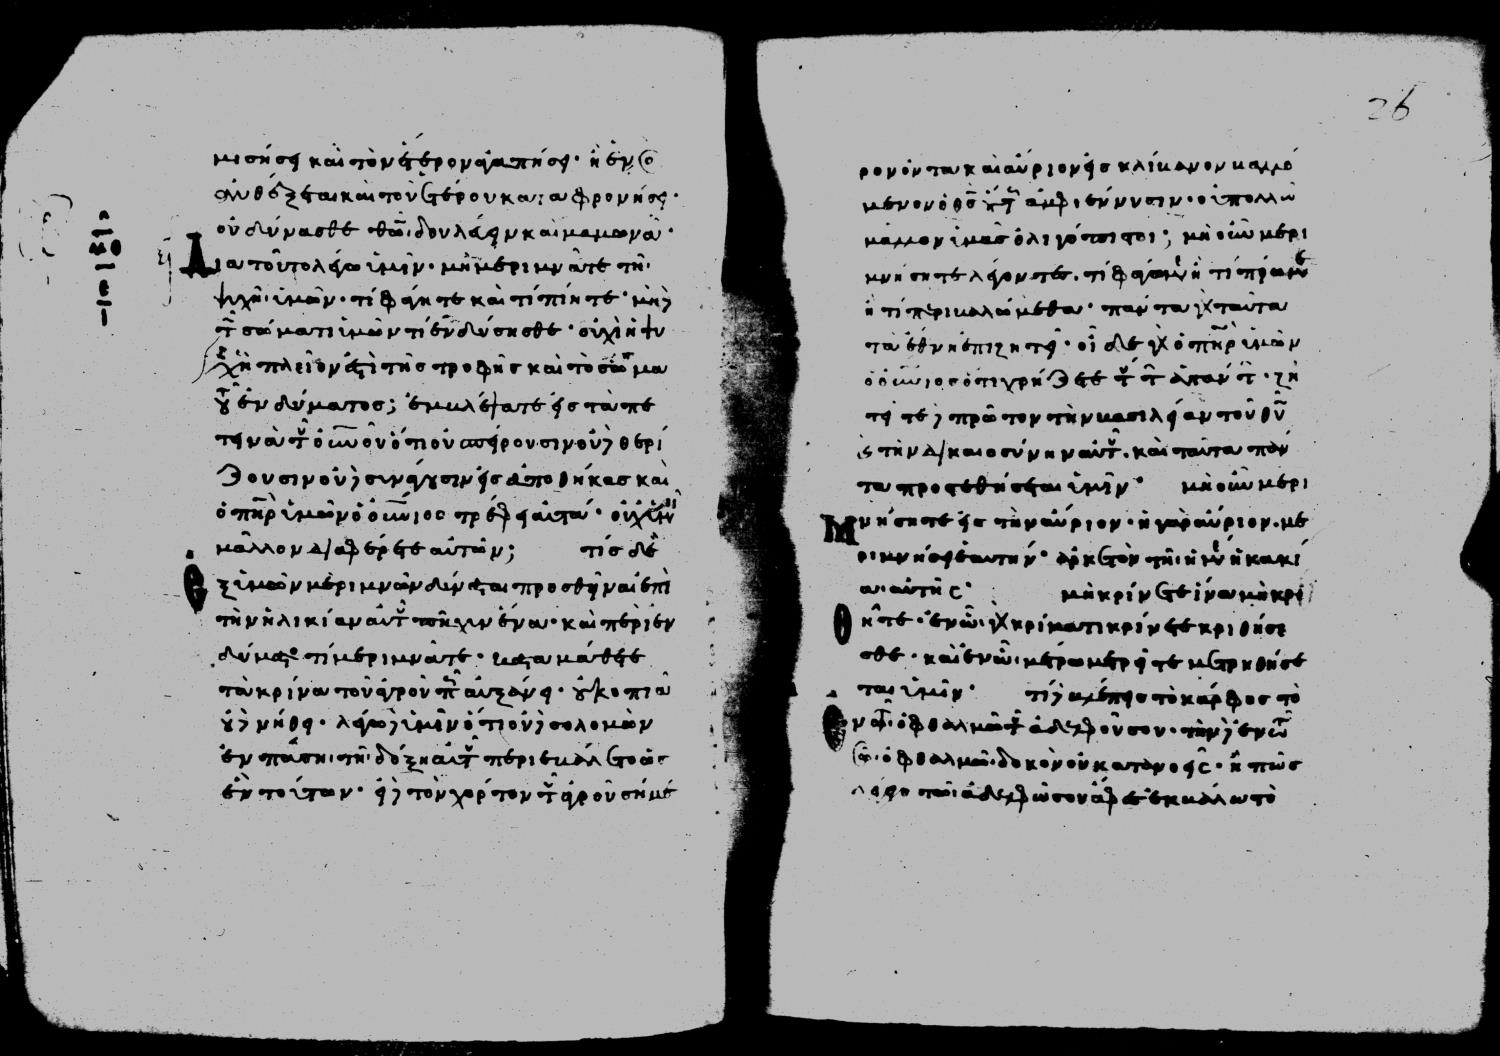 μισήσει καὶ τὸν ἕτερον ἀγαπήσει· ἢ ἑνὸσ
ἀνθέξεται καὶ τοῦ ἑτέρου καταφρονήσει·
οὐ δύνασθε θῶ δουλεύειν καὶ μαμωνᾶ·
Διατοῦτο λέγω ὑμῖν· μὴ μεριμνᾶτε τῆ
ψυχῆ ὑμῶν· τί φάγητε καὶ τί πίητε· μηδὲ
τῶ σώματι ὑμῶν τί ἐνδύσησθε· οὐχὶ ἡ ψυ
χὴ πλεῖον ἐστὶ τῆσ τροφῆσ καὶ τὸ σῶμα
τοῦ ἐνδύματοσ; ἐμβλέψατε εἰσ τὰ πε
τεινὰ τοῦ οὐνοῦ ὅτι οὐ σπείρουσιν οὐδὲ θερί
ζουσιν οὐδὲ συνάγουσιν εἰσ ἀποθήκασ καὶ
ὁ πηρ ὑμῶν ὁ οὐνιοσ τρέφει αὐτά· οὐχ ὑμεῖσ
μᾶλλον διαφέρετε αὐτῶν; τίσ δὲ
ἐξ ὑμῶν μεριμνῶν δύναται προσθῆναι ἐπὶ
τὴν ἡλικίαν αὐτοῦ πῆχυν ἕνα· καὶ περὶ ἐν
δύματοσ τί μεριμνᾶτε· καταμάθετε
τὰ κρίνα τοῦ ἀγροῦ πῶσ αὐξάνει· οὐ κοπιᾶ
οὐδὲ νήθει· λέγω δὲ ὑμῖν ὅτι οὐδὲ σολομὼν
ἐν πάση τῆ δόξη αὐτοῦ περιεβάλετο ὡσ
ἓν τούτων· εἰ δὲ τὸν χόρτον τοῦ ἀγροῦ σήμε
26
ρον ὄντα καὶ αὔριον εἰσ κλίβανον βαλλό
μενον ὁ θσ οὕτωσ ἀμφιέννυσιν· οὐ πολλῶ
μᾶλλον ὑμᾶσ ὀλιγόπιστοι; μὴ οὖν μερι
μνήσητε λέγοντεσ· τί φάγωμεν ἢ τί πίωμεν
ἢ τί περιβαλώμεθα· πάντα γὰρ ταῦτα
τὰ ἔθνη ἐπιζητεῖ· οἶδε γὰρ ὁ πηρ ὑμῶν
ὁ οὐνιοσ ὅτι χρήζετε τούτων ἁπάντων· ζη
τεῖτε δὲ πρῶτον τὴν βασιλείαν τοῦ θῦ
καὶ τὴν δικαιοσύνην αὐτοῦ· καὶ ταῦτα πάν
τα προστεθήσεται ὑμῖν· μὴ οὖν μερι
μνήσητε εἰσ τὴν αὔριον· ἡ γὰρ αὔριον με
ριμνήσει ἑαυτῆσ· ἀρκετὸν τῆ ἡμέρα ἡ κακί
α αὐτῆσ· μὴ κρίνετε ἵνα μὴ κρι
θῆτε· ἐν ὧ γὰρ κρίματι κρίνετε κριθήσε
σθε· καὶ ἐν ὧ μέτρω μετρεῖτε μετρηθήσε
ται ὑμῖν· τί δὲ βλέπεισ τὸ κάρφοσ τὸ
ἐν τῶ ὀφθαλμῶ τοῦ ἀδελφοῦ σου· τὴν δὲ ἐν τῶ
σῶ ὀφθαλμῶ δοκὸν οὐ κατανοεῖσ· ἢ πῶσ
λέγεισ τῶ ἀδελφῶ σου ἄφεσ ἐκβάλω τὸ